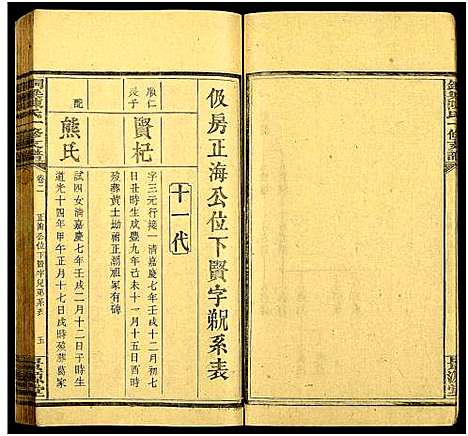 伋房正海公位下賢字覜系表
十一代
順仁
長子
賢杞
字三元行接一清嘉慶七年壬戌十二月初七
日丑時生咸豐九年己未十一月十五日酉時
歿葬黃土坳祔正湖頑冢有碑
配
熊氏
試四女清嘉慶七年壬戌二月十二日子時生
道光十四年甲午正月十七日戌時歿葬葛家
卷二
正海公位下賢字兄弟系表
五